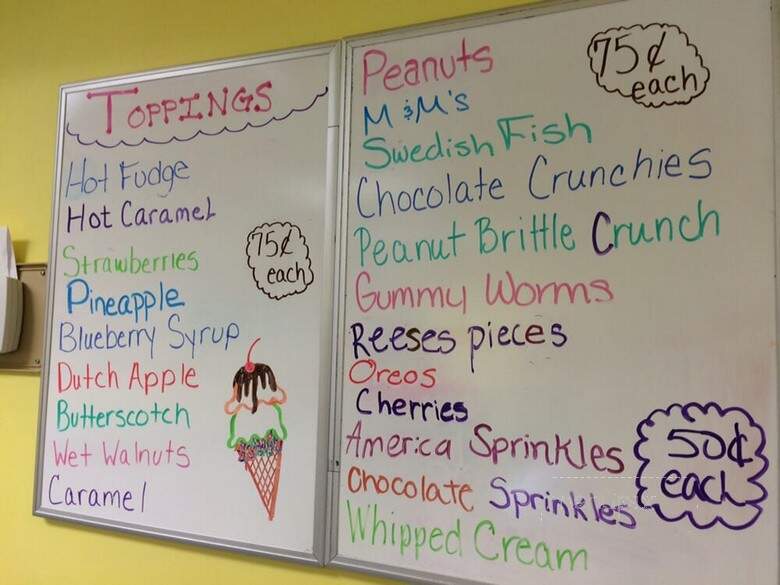 TOPPINGS
Hot Fudge
Hot Caramel
Strawberries
75¢
each
Pineapple
Blueberry Syrup
Dutch Apple
Butterscotch
Wet Walnuts
Caramel
Peanuts
75¢
each
M&M's
Swedish Fish
Chocolate Crunchies
Peanut Brittle Crunch
Gummy Worms
Reeses pieces
Oreos
Cherries
America Sprinkles
50¢
each
Chocolate Sprinkles
Whipped Cream